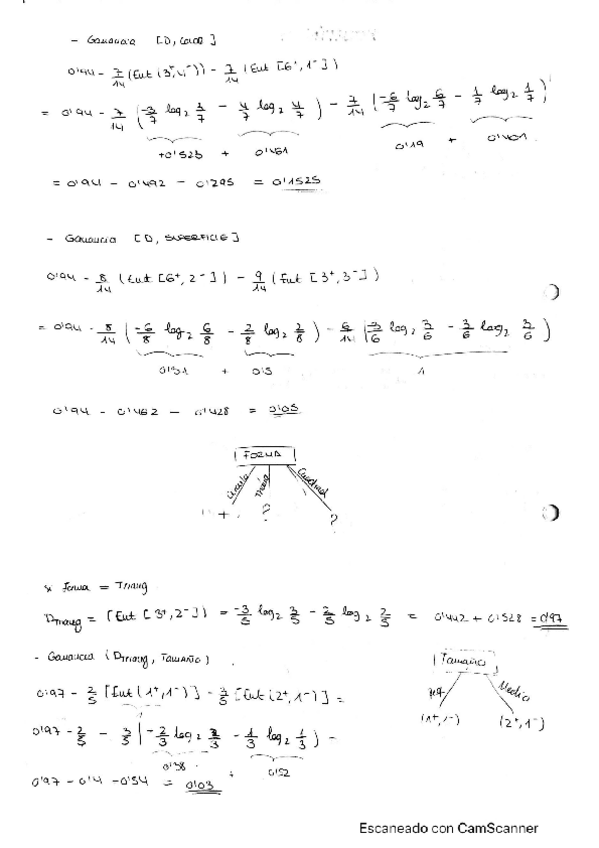 - Ganancia [D, Color]
0'94 - 7/14 (Ent (3+, 4-)) - 7/14 (Ent [6+, 1-])
= 0'94 - 7/14 (-3/7 log2 3/7 - 4/7 log2 4/7) - 7/14 (-6/7 log2 6/7 - 1/7 log2 1/7)
+0'523 + 0'461 0'19 + 0'401
= 0'94 - 0'492 - 0'295 = 0'1525
- Ganancia [D, SUPERFICIE]
0'94 - 8/14 (Ent [6+, 2-]) - 9/14 (Ent [3+, 3-])
= 0'94 - 8/14 (-6/8 log2 6/8 - 2/8 log2 2/8) - 6/14 (-3/6 log2 3/6 - 3/6 log2 3/6)
0'31 + 0'5 1
0'94 - 0'462 - 0'428 = 0'05
FORMA
Círculo Triáng Cuadrad
+ ? ?
* Forma = Triang
Dtriang = [Ent [3+, 2-]) = -3/5 log2 3/5 - 2/5 log2 2/5 = 0'442 + 0'528 = 0'97
- Ganancia (Dtriang, TAMAÑO)
Tamaño
Medio
(1+, 1-) (2+, 1-)
0'97 - 2/5 [Ent (1+, 1-)] - 3/5 [Ent (2+, 1-)] =
1
0'97 - 2/5 - 3/5 (-2/3 log2 2/3 - 1/3 log2 1/3) =
0'38 + 0'52
0'97 - 0'4 - 0'54 = 0'03
Escaneado con CamScanner